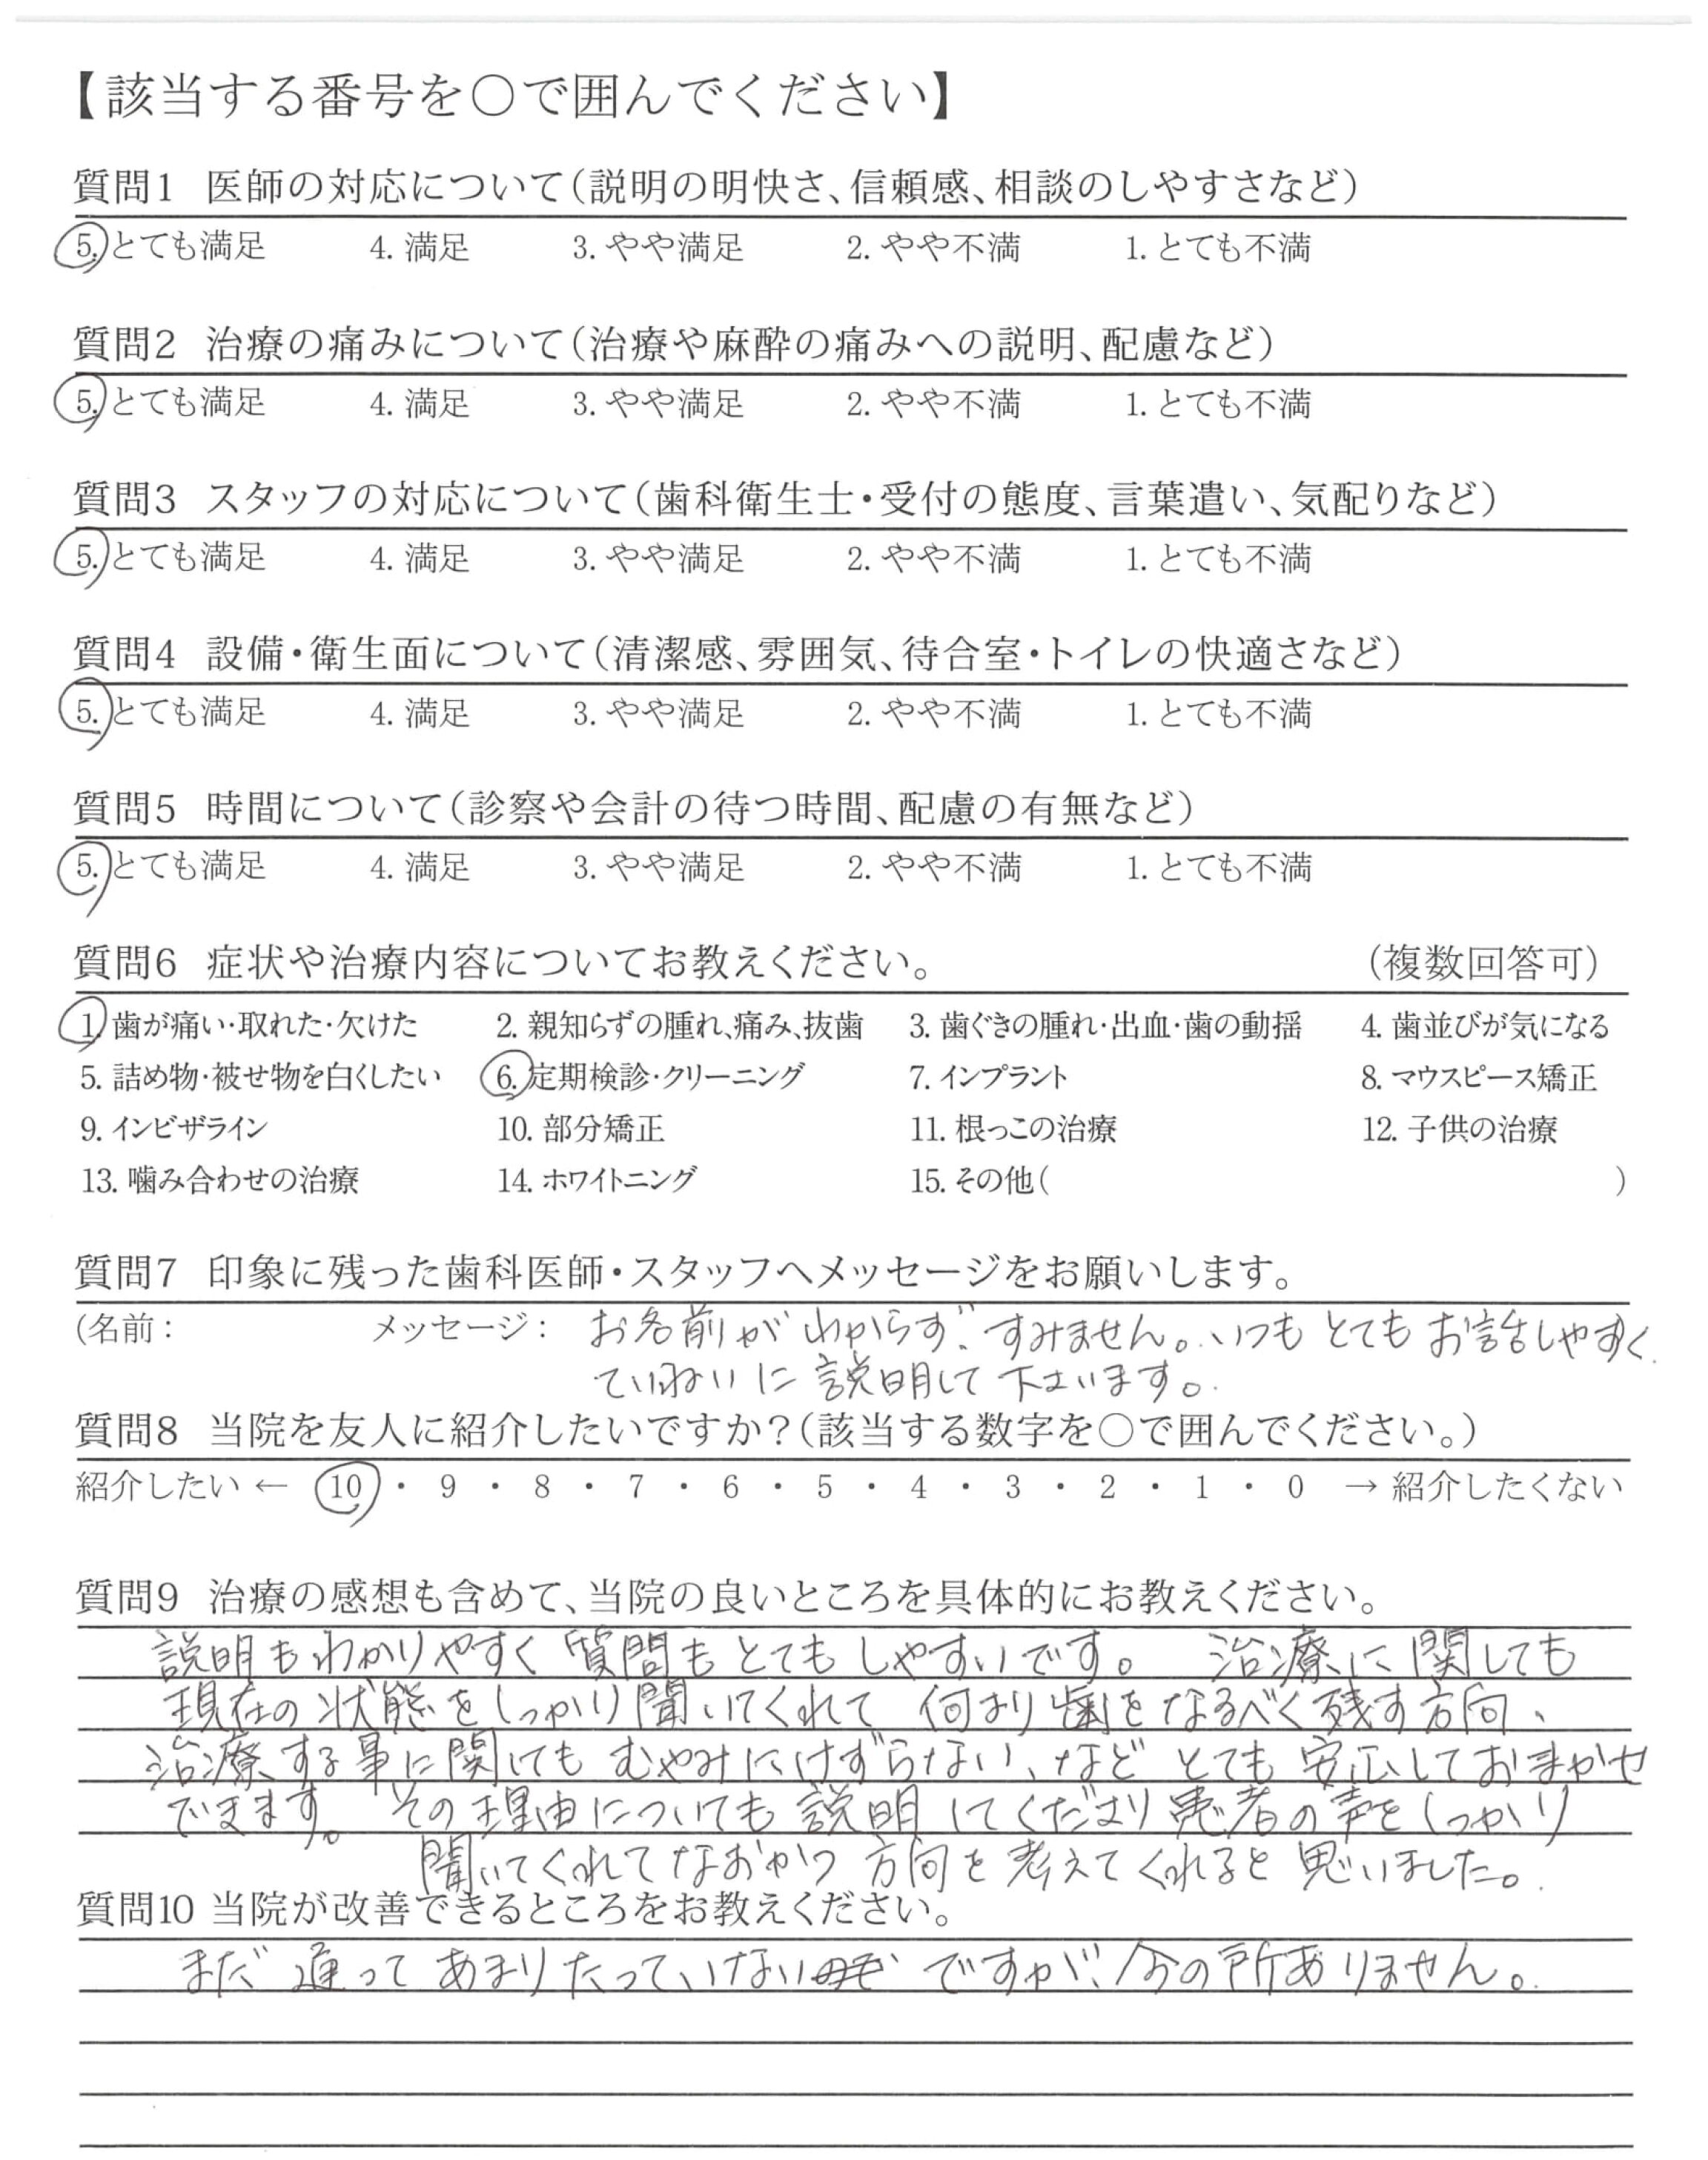 【該当する番号を○で囲んでください】
質問1 医師の対応について(説明の明快さ、信頼感、相談のしやすさなど)
5. とても満足 4. 満足 3. やや満足 2. やや不満 1. とても不満
質問2 治療の痛みについて(治療や麻酔の痛みへの説明、配慮など)
5. とても満足 4. 満足 3. やや満足 2. やや不満 1. とても不満
質問3 スタッフの対応について(歯科衛生士・受付の態度、言葉遣い、気配りなど)
5. とても満足 4. 満足 3. やや満足 2. やや不満 1. とても不満
質問4 設備・衛生面について(清潔感、雰囲気、待合室・トイレの快適さなど)
5. とても満足 4. 満足 3. やや満足 2. やや不満 1. とても不満
質問5 時間について(診察や会計の待つ時間、配慮の有無など)
5. とても満足 4. 満足 3. やや満足 2. やや不満 1. とても不満
質問6 症状や治療内容についてお教えください。 (複数回答可)
1. 歯が痛い・取れた・欠けた 2. 親知らずの腫れ、痛み、抜歯 3. 歯ぐきの腫れ・出血・歯の動揺 4. 歯並びが気になる
5. 詰め物・被せ物を白くしたい 6. 定期検診・クリーニング 7. インプラント 8. マウスピース矯正
9. インビザライン 10. 部分矯正 11. 根っこの治療 12. 子供の治療
13. 噛み合わせの治療 14. ホワイトニング 15. その他( )
質問7 印象に残った歯科医師・スタッフへメッセージをお願いします。
(名前: メッセージ: お名前がわからず、すみません。いつもとてもお話しやすく
ていねいに説明して下さいます。
質問8 当院を友人に紹介したいですか?(該当する数字を○で囲んでください。)
紹介したい ← 10 ・ 9 ・ 8 ・ 7 ・ 6 ・ 5 ・ 4 ・ 3 ・ 2 ・ 1 ・ 0 → 紹介したくない
質問9 治療の感想も含めて、当院の良いところを具体的にお教えください。
説明もわかりやすく質問もとてもしやすいです。 治療に関しても
現在の状態をしっかり聞いてくれて何より歯をなるべく残す方向、
治療する事に関してもむやみにけずらない、などとても安心しておまかせ
できます。 その理由についても説明してくださり患者の声をしっかり
聞いてくれてなおかつ方向を考えてくれると思いました。
質問10 当院が改善できるところをお教えください。
まだ通ってあまりたっていない ですが、今の所ありません。